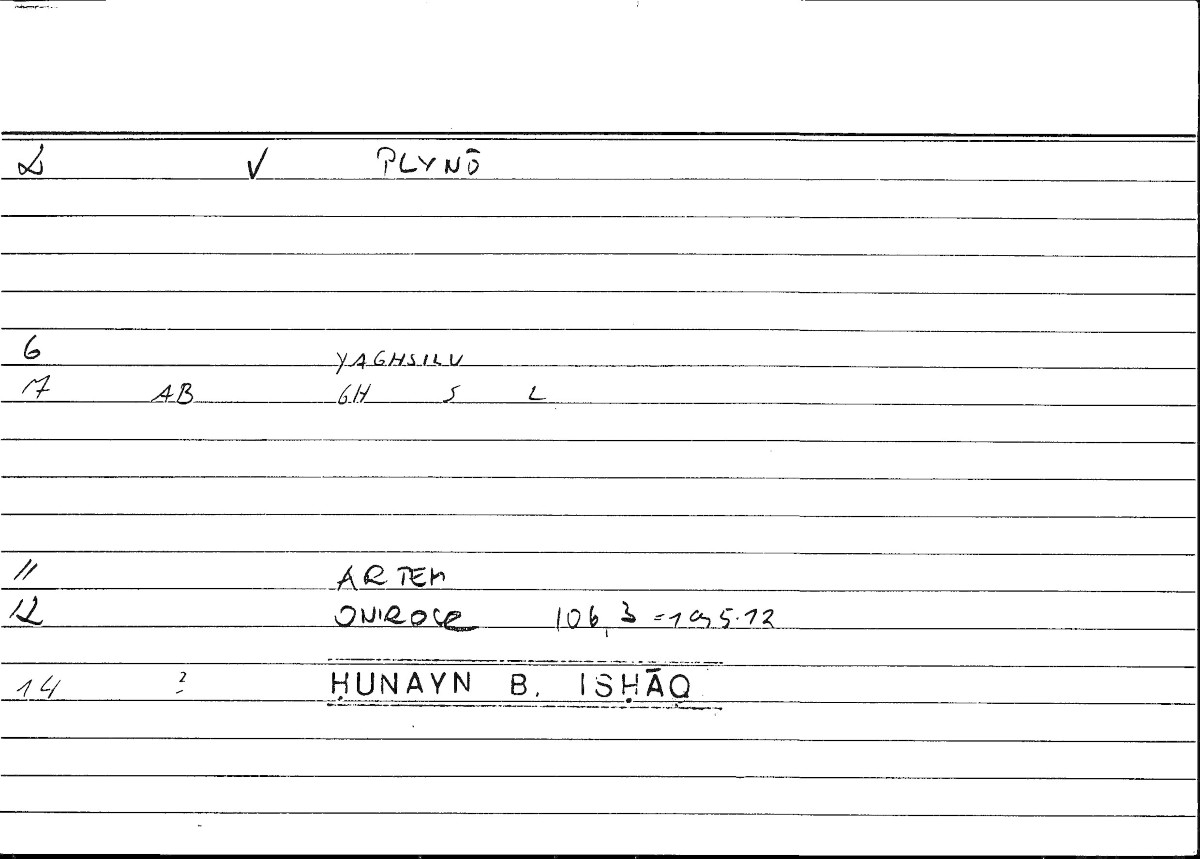 2 V PLYNŌ
6 YAGHSILU
7 AB GH S L
11 ARTEM
12 ONIROCR 106,3 = 195.12
14 ? ḤUNAYN B. ISḤĀQ